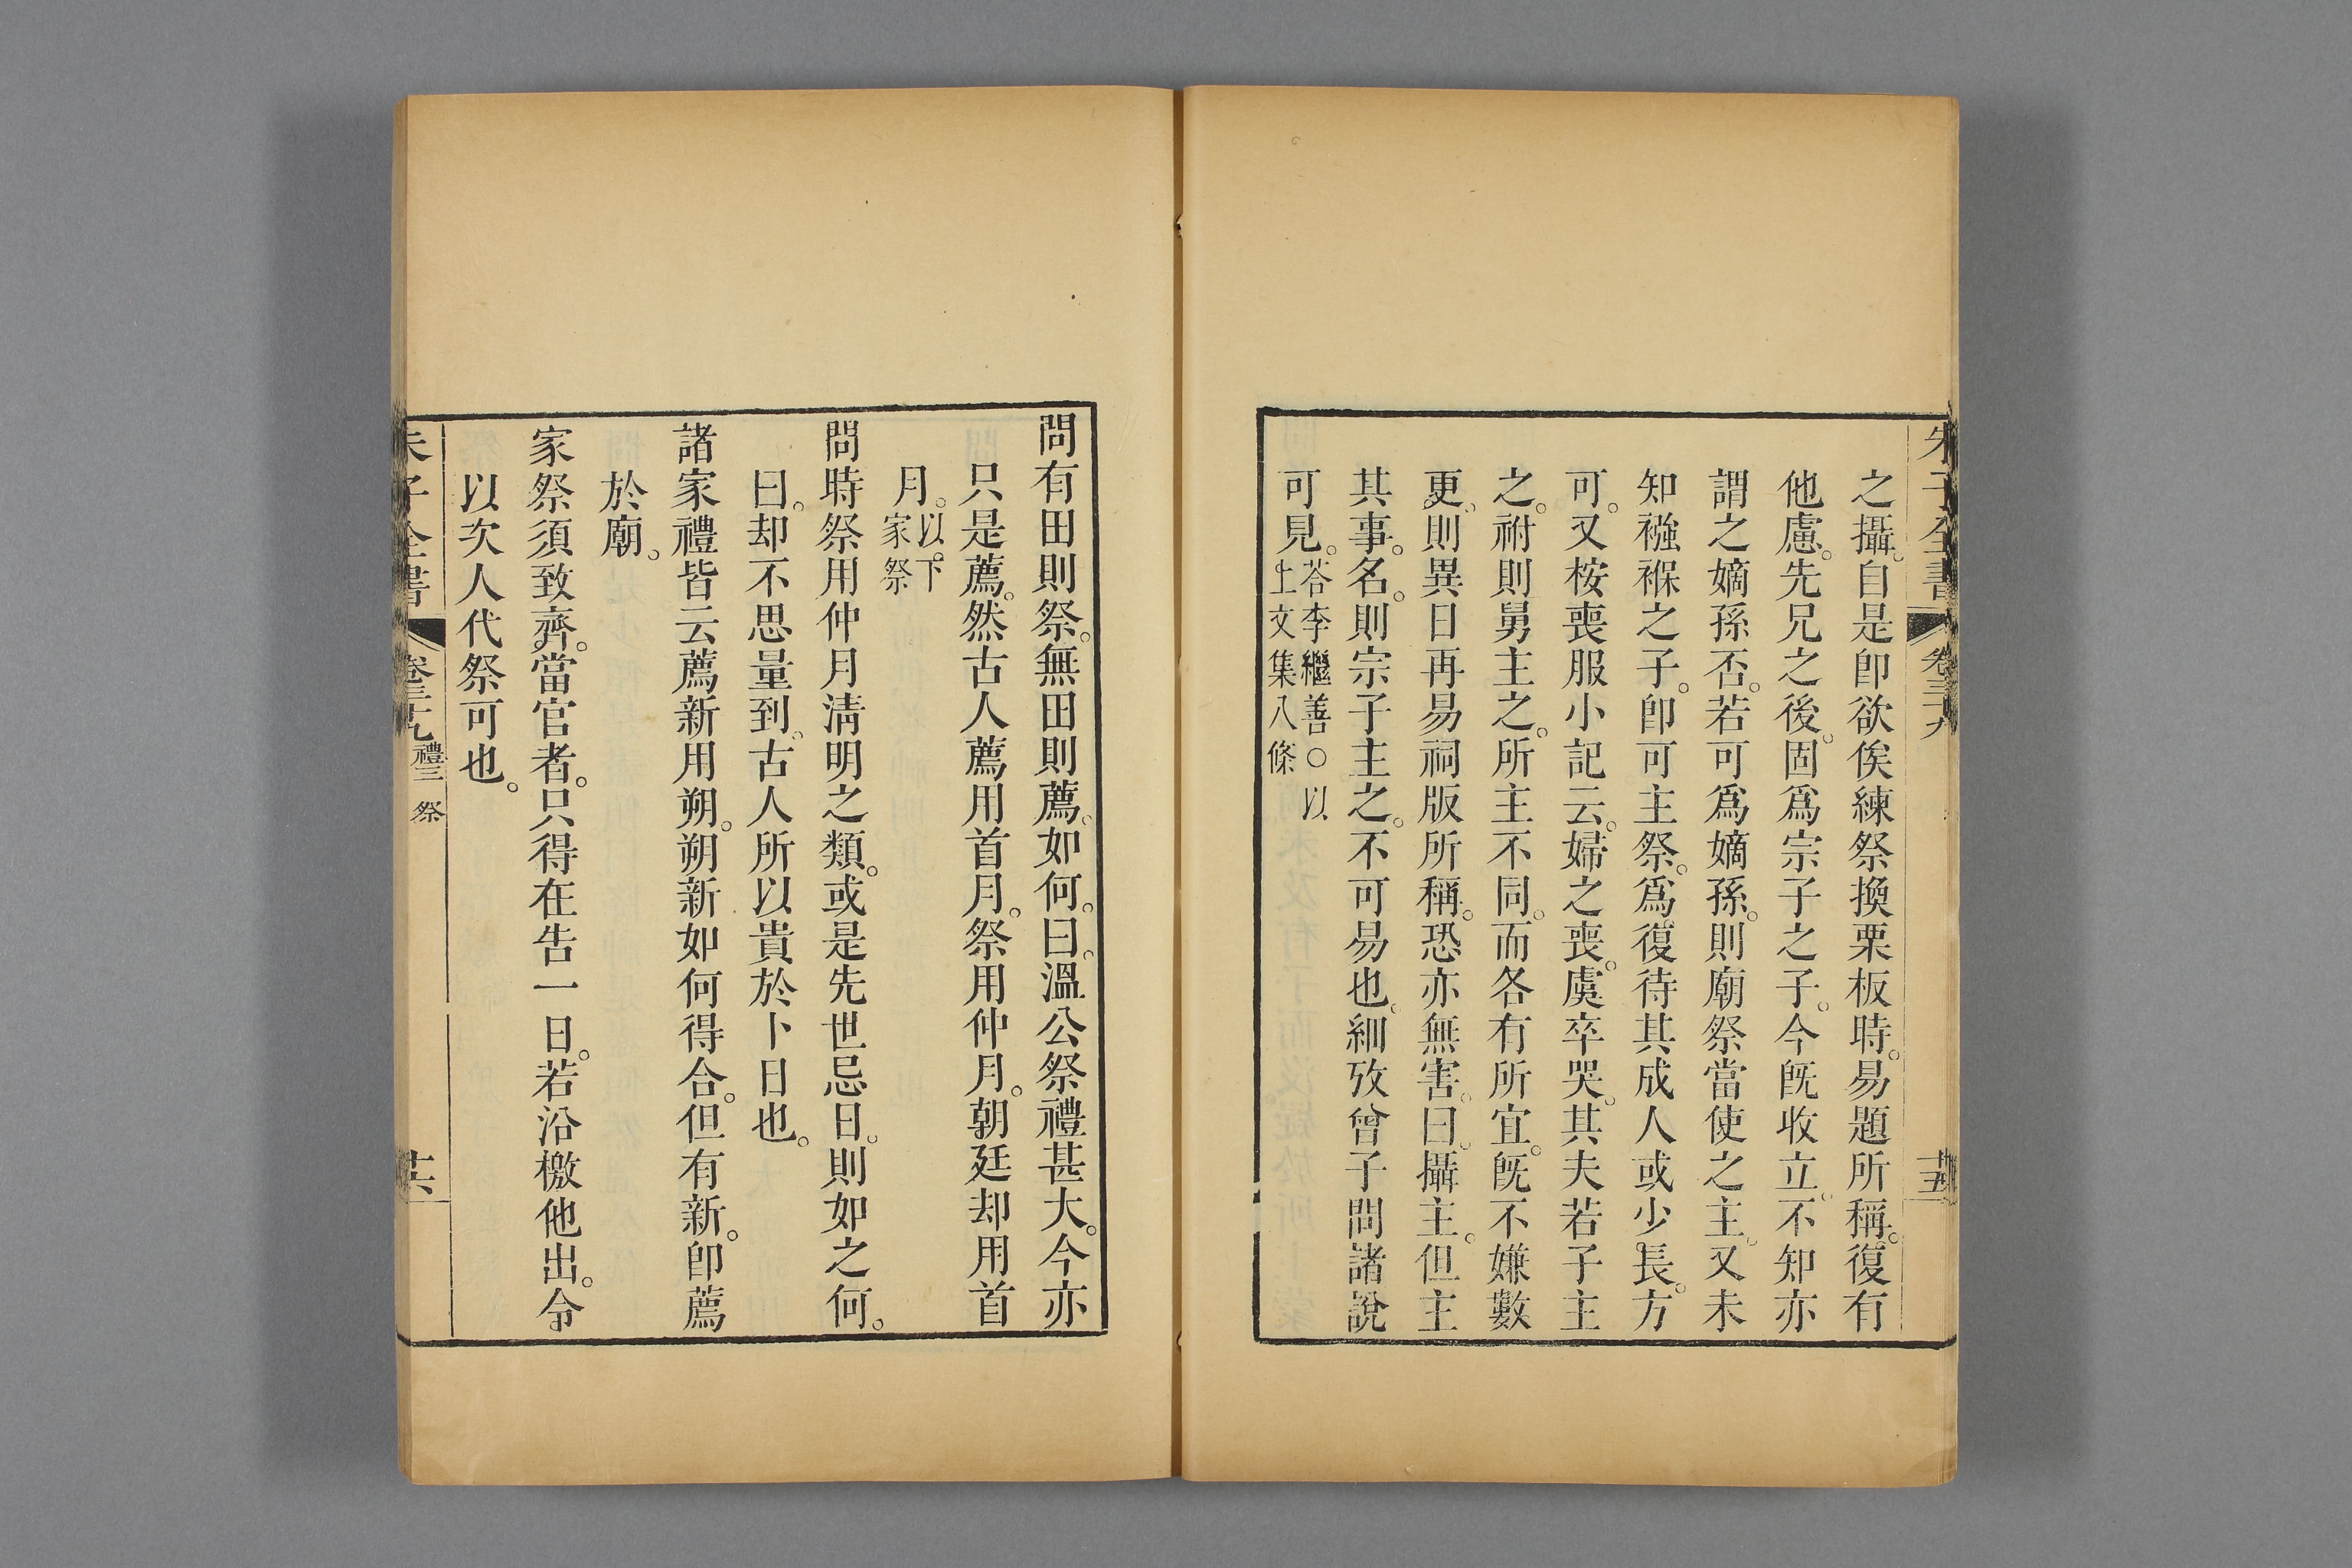 朱子全書 卷三十九 十五
之攝。自是卽欲俟練祭換栗板時。易題所稱。復有
他慮。先兄之後。固爲宗子之子。今旣收立。不知亦
謂之嫡孫否。若可爲嫡孫。則廟祭當使之主。又未
知襁褓之子。卽可主祭。爲復待其成人或少長。方
可。又桉喪服小記云。婦之喪。虞卒哭。其夫若子主
之。祔則舅主之。所主不同。而各有所宜。旣不嫌數
更。則異日再易祠版所稱。恐亦無害。曰。攝主。但主
其事。名。則宗子主之。不可易也。細攷曾子問諸說
可見。荅李繼善○以
上文集八條
問有田則祭。無田則薦。如何。曰。溫公祭禮甚大。今亦
只是薦。然古人薦用首月。祭用仲月。朝廷却用首
月。以下
家祭
問時祭用仲月淸明之類。或是先世忌日。則如之何。
曰。却不思量到。古人所以貴於卜日也。
諸家禮皆云薦新用朔。朔新如何得合。但有新。卽薦
於廟。
家祭須致齊。當官者。只得在告一日。若沿檄他出。令
以次人代祭可也。
朱子全書 卷三十九 禮三 祭 十六